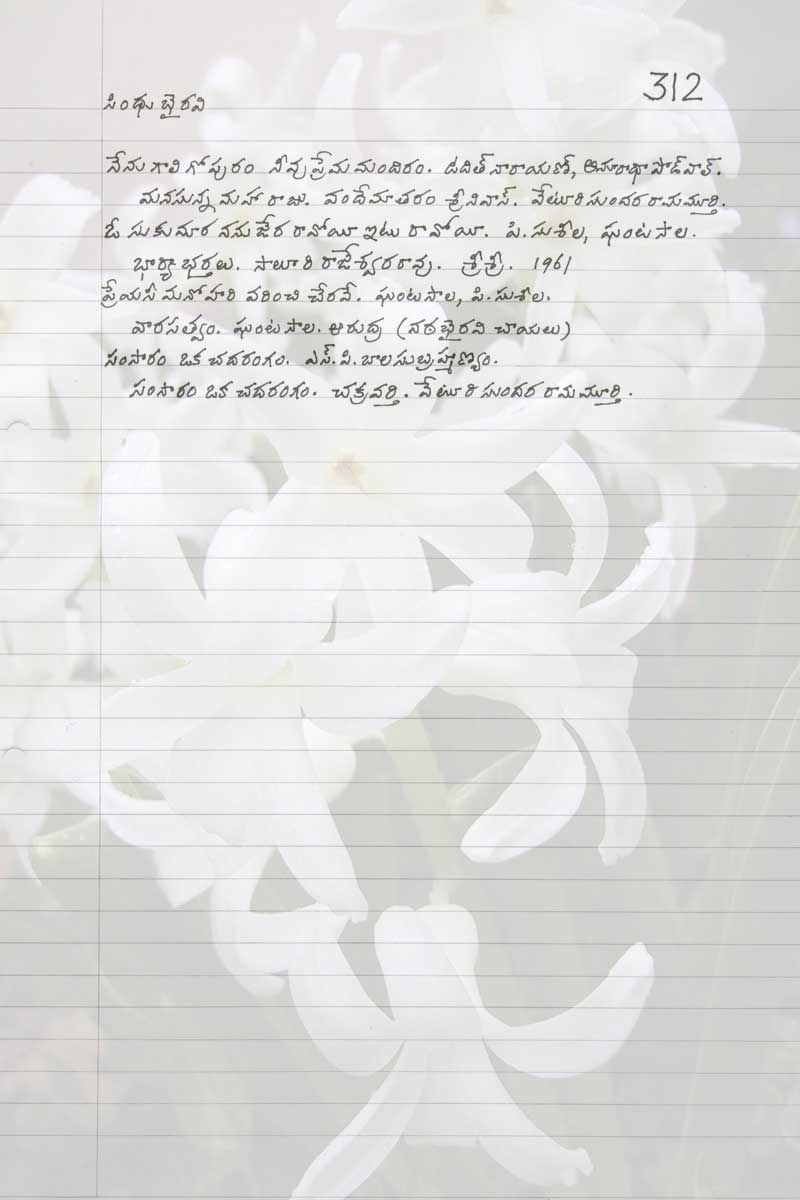 312
సింధు భైరవి
నేను గాలి గోపురం నీవు ప్రేమ మందిరం. ఉదిత్ నారాయణ్, అనూరాధా పౌడ్వాల్.
మనసున్న మహా రాజు. వందేమాతరం శ్రీనివాస్. వేటూరి సుందర రామమూర్తి.
ఓ సుకుమార నను జేర రావోయీ ఇటు రావోయీ. పి.సుశీల, ఘంటసాల.
భార్యా భర్తలు. సాలూరి రాజేశ్వరరావు. శ్రీశ్రీ. 1961
ప్రేయసీ మనోహరి వరించి చేరవే. ఘంటసాల, పి.సుశీల.
వారసత్వం. ఘంటసాల. ఆరుద్ర (నఠభైరవి చాయలు)
సంసారం ఒక చదరంగం. ఎస్.పి.బాలసుబ్రహ్మణ్యం.
సంసారం ఒక చదరంగం. చక్రవర్తి. వేటూరి సుందర రామమూర్తి.